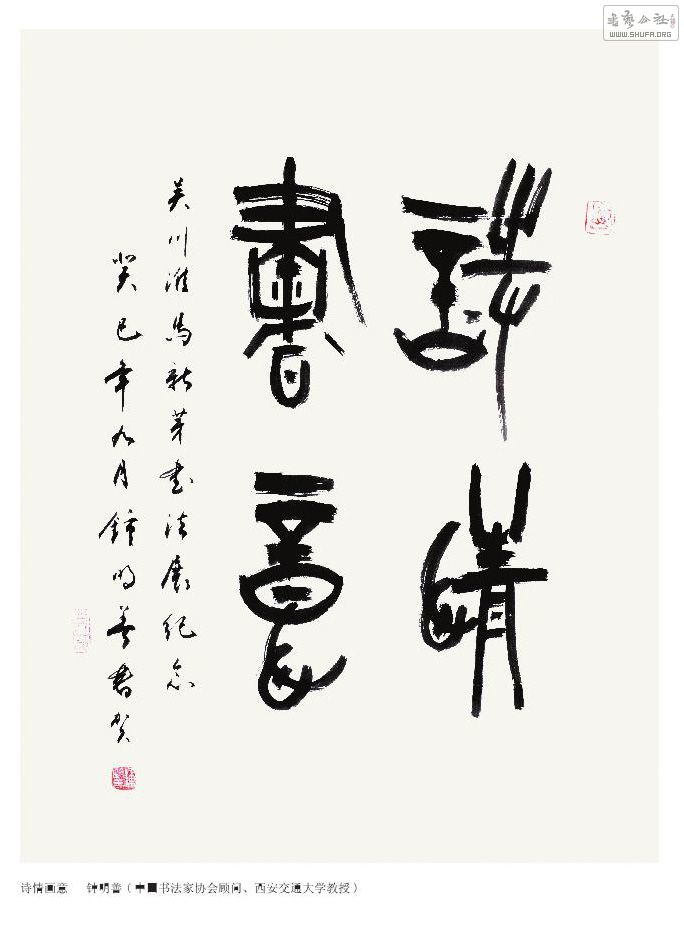 書藝公社
WWW.SHUFA.ORG
詩情
畫意
吴川淮馬新芽书法展纪念
癸巳年九月鍾明善書贺
诗情画意 钟明善（中国书法家协会顾问、西安交通大学教授）